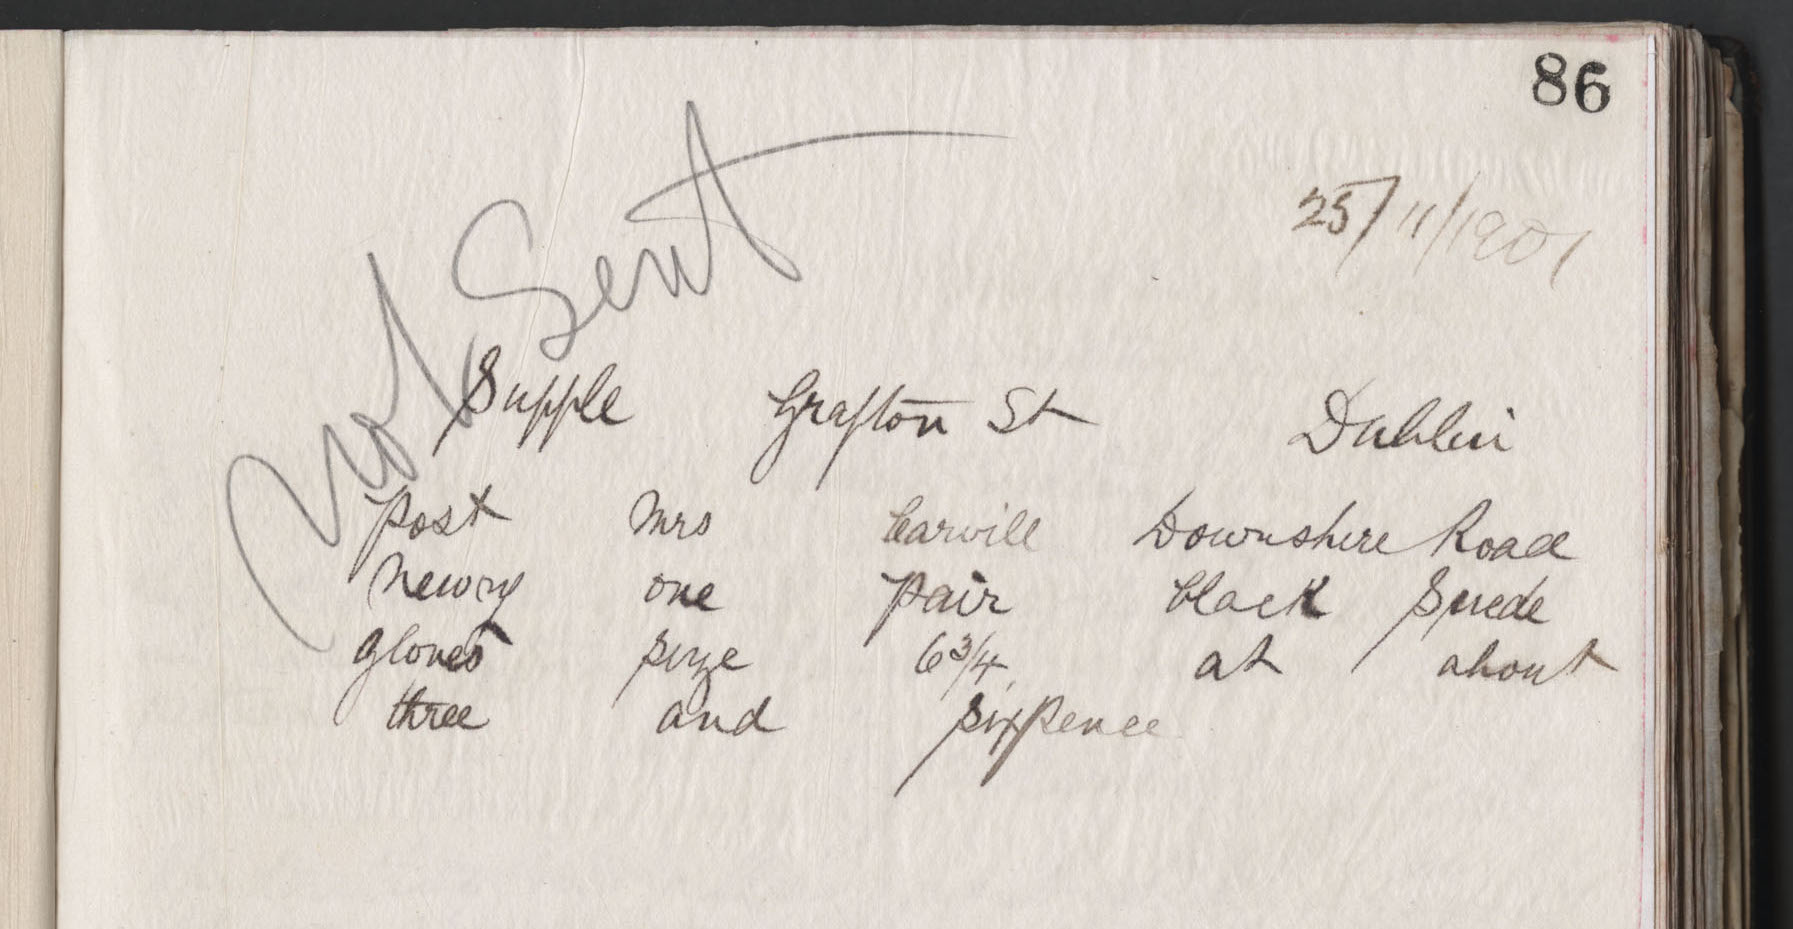 86
25/11/1901
Not Sent
Supple Grafton St Dublin
Post Mrs Carvill Downshire Road
Newry one pair black Suede
gloves size 6 3/4 at about
three and sixpence